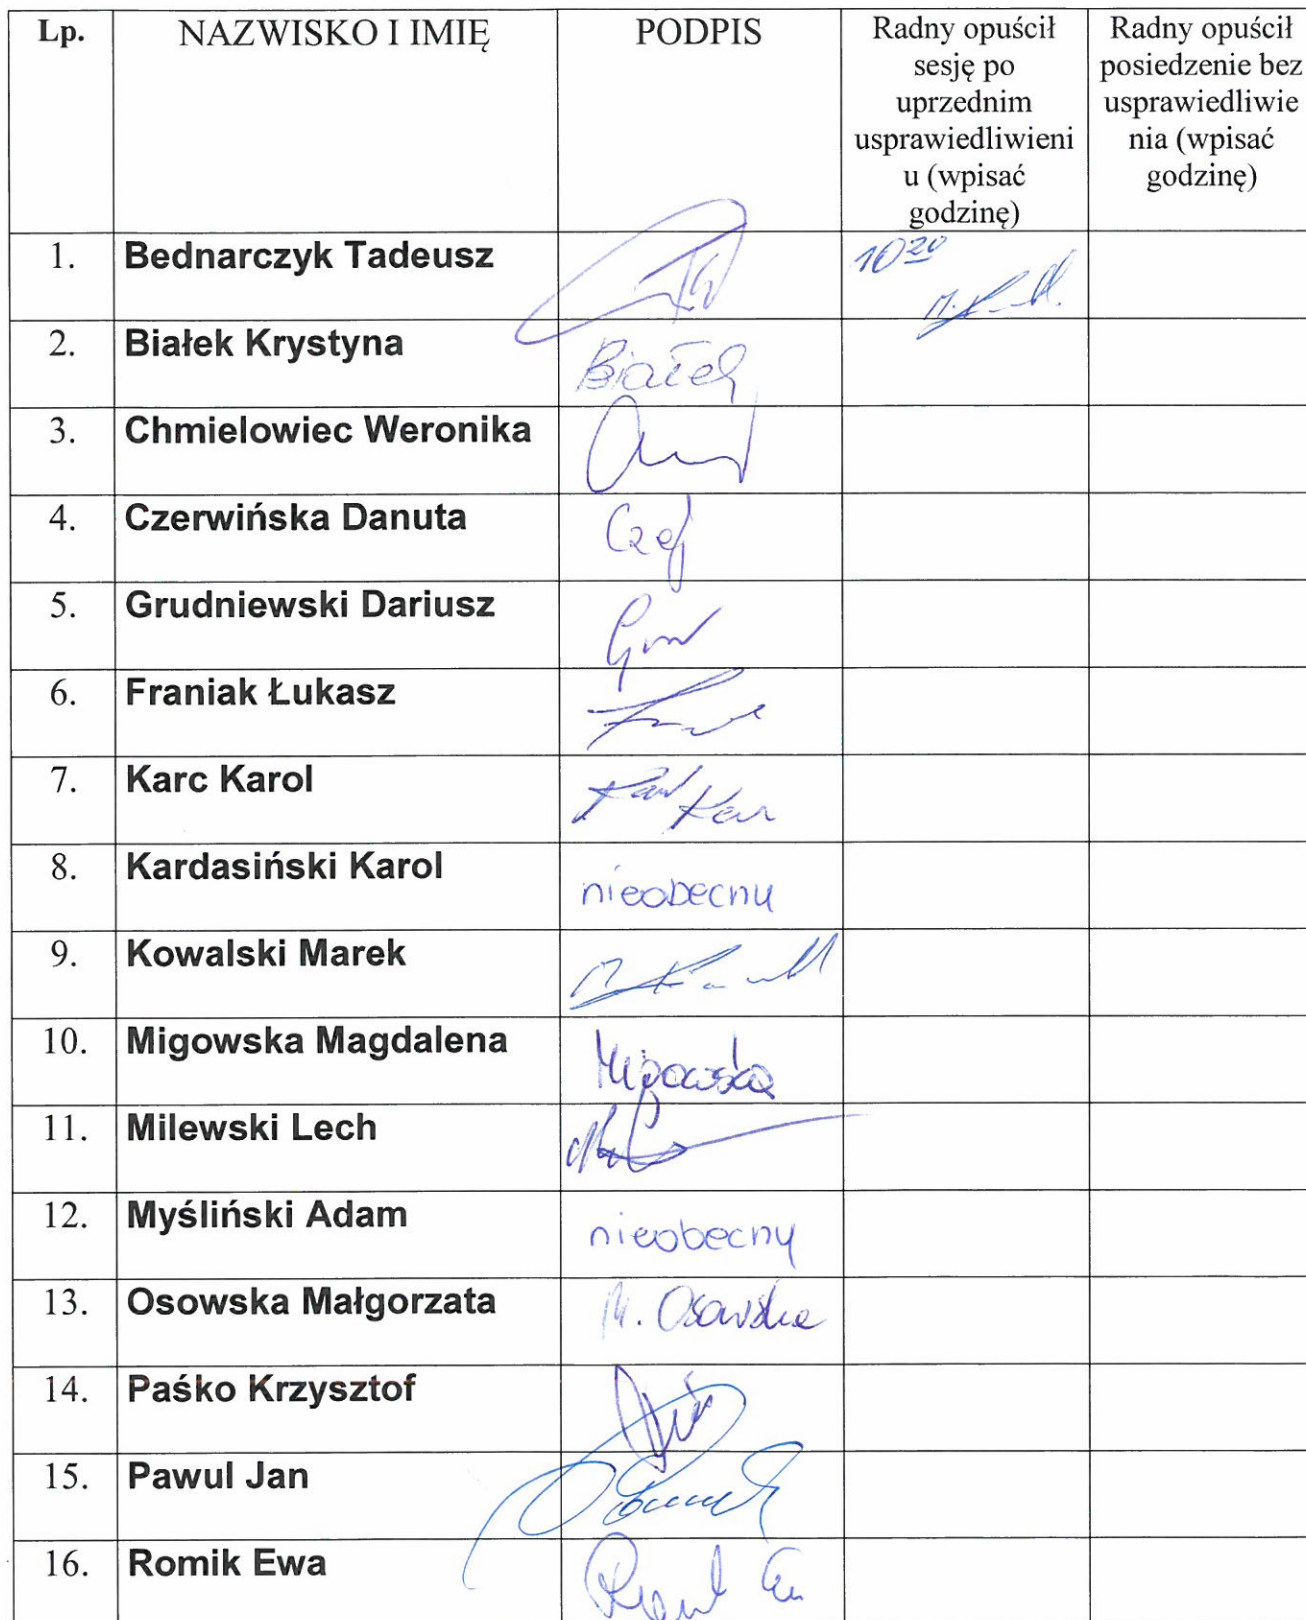 Lp.
NAZWISKO I IMIĘ
PODPIS
Radny opuścił
sesję po
uprzednim
usprawiedliwieni
u (wpisać
godzinę)
Radny opuścił
posiedzenie bez
usprawiedliwie
nia (wpisać
godzinę)
1. Bednarczyk Tadeusz 10²⁰
2. Białek Krystyna Białek
3. Chmielowiec Weronika
4. Czerwińska Danuta
5. Grudniewski Dariusz
6. Franiak Łukasz
7. Karc Karol
8. Kardasiński Karol nieobecny
9. Kowalski Marek
10. Migowska Magdalena Migowska
11. Milewski Lech
12. Myśliński Adam nieobecny
13. Osowska Małgorzata M. Osowska
14. Paśko Krzysztof
15. Pawul Jan
16. Romik Ewa